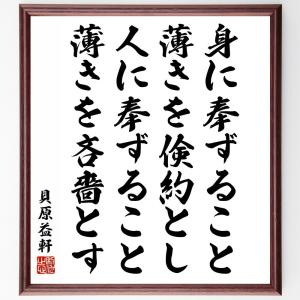 身に奉ずること
薄きを倹約とし
人に奉ずること
薄きを吝嗇とす
貝原益軒